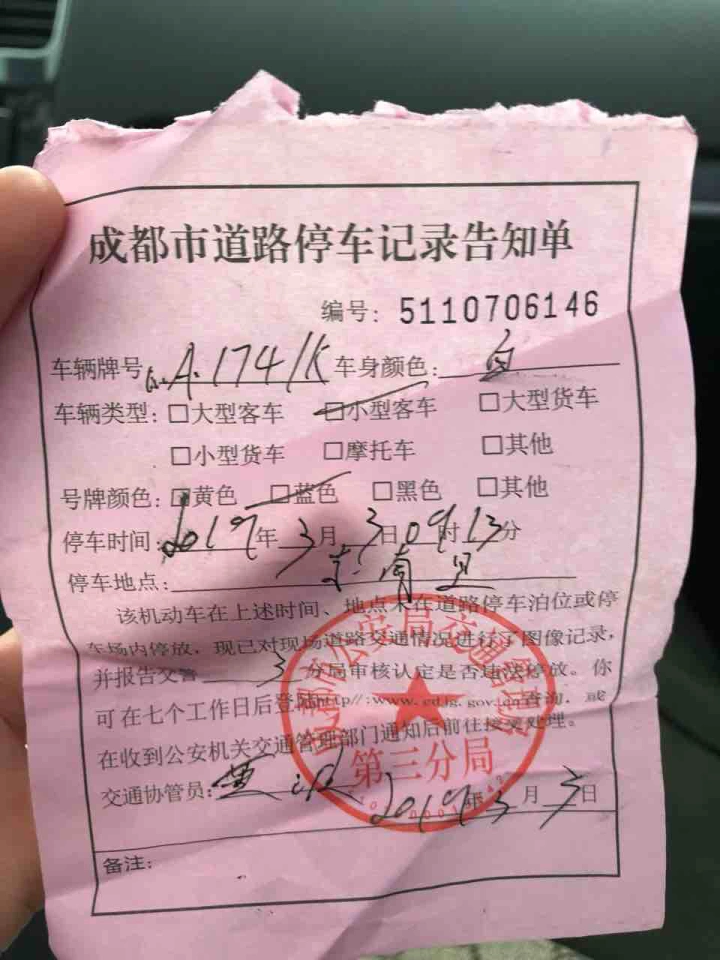 成都市道路停车记录告知单
编号: 5110706146
车辆牌号 A·1741K 车身颜色: 白
车辆类型: □大型客车 □小型客车 □大型货车
□小型货车 □摩托车 □其他
号牌颜色: □黄色 □蓝色 □黑色 □其他
停车时间: 2019年3月3日09时13分
停车地点: 南里
该机动车在上述时间、地点未在道路停车泊位或停
车场内停放，现已对现场道路交通情况进行了图像记录，
并报告交警 3 分局审核认定是否违法停放。你
可在七个工作日后登陆http//:www.cdjg.gov.cn查询，或
在收到公安机关交通管理部门通知后前往接受处理。
第三分局
交通协管员: 黄 2019年3月3日
备注: